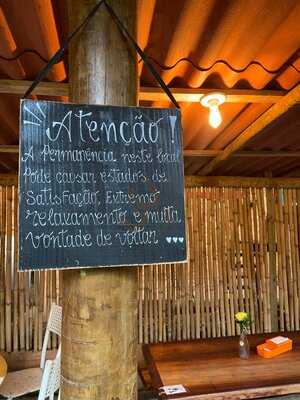 Atenção!
A permanência neste local
Pode causar estados de
Satisfação, Extremo
relaxamento e muita
vontade de voltar